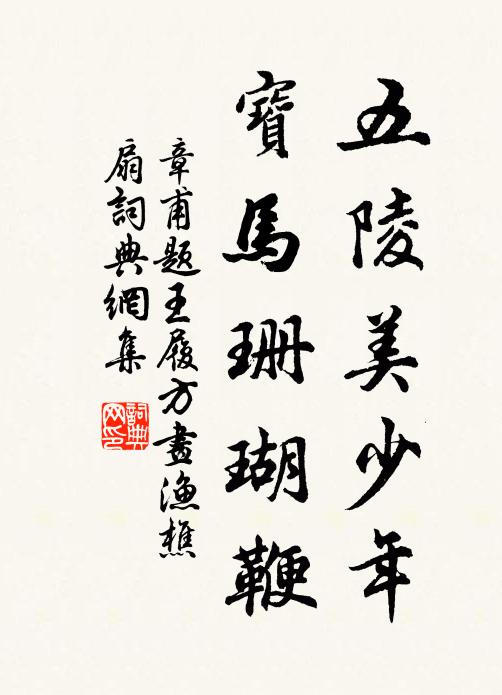 五陵美少年
寶馬珊瑚鞭
章甫題王履方畫漁樵
扇詞典網集
詞典網印